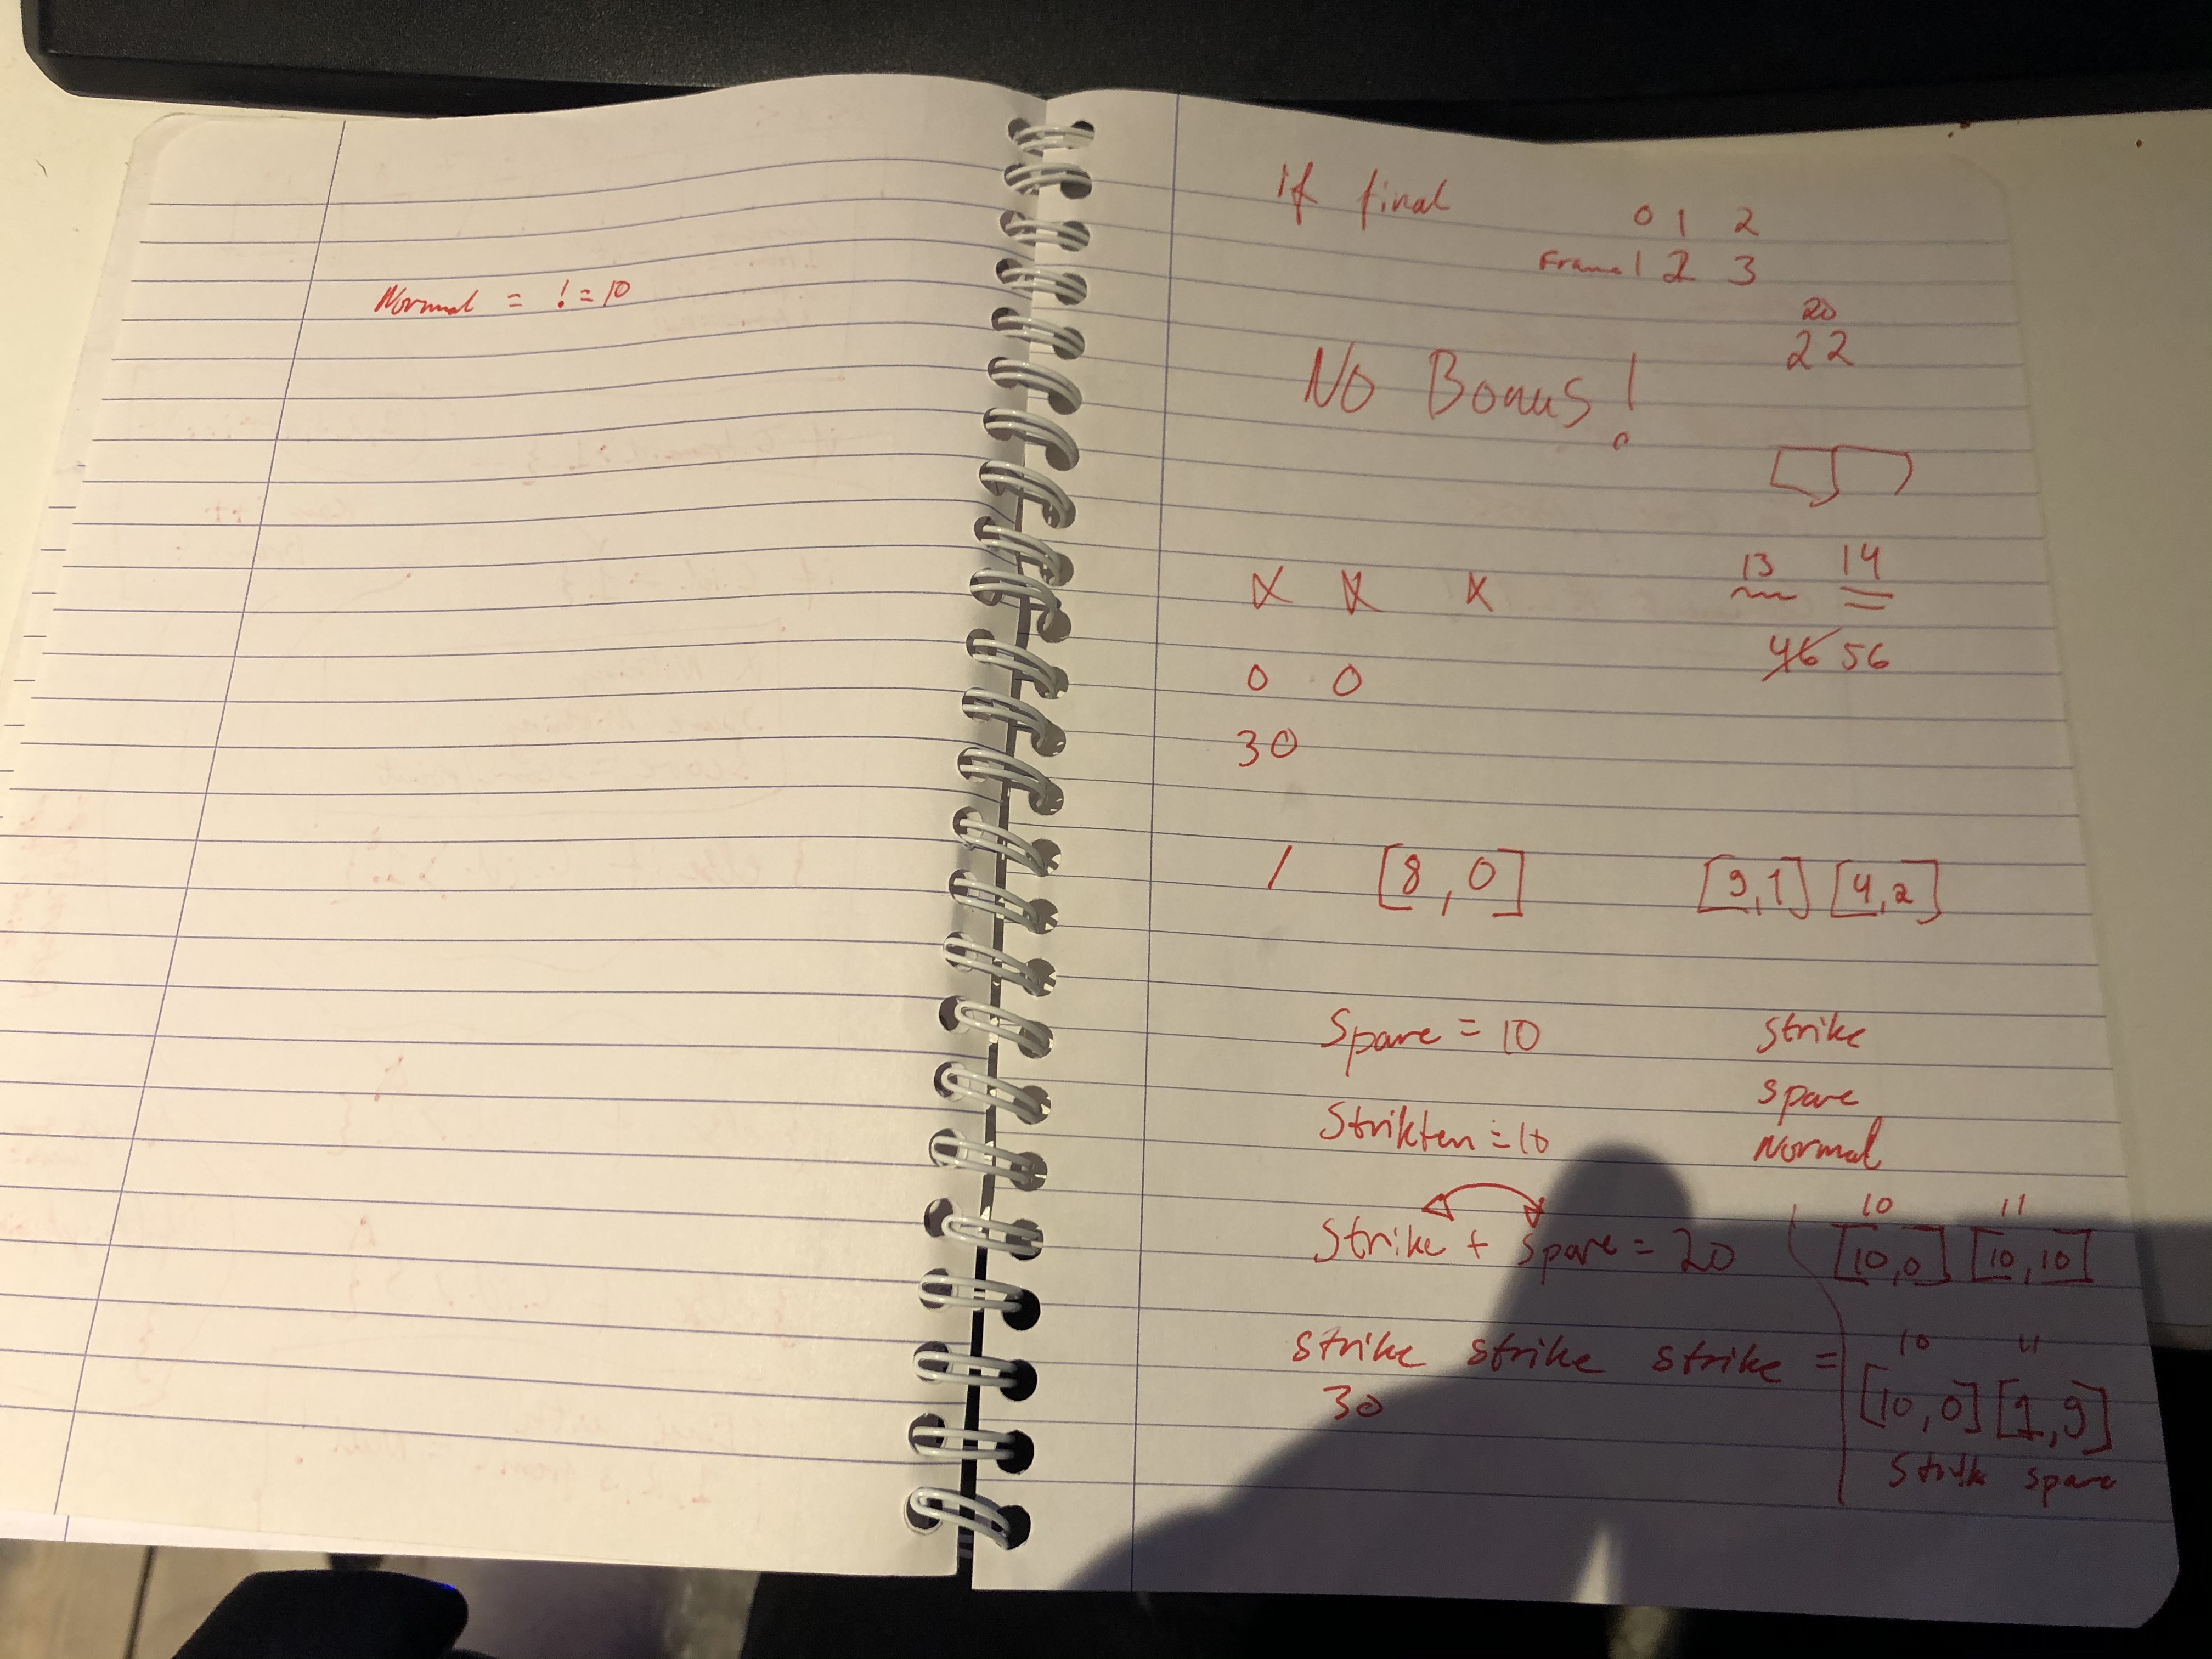 Normal = != 10
If final
0 1 2
Frame 1 2 3
20
22
No Bonus!
X X X
13 14
46 56
0 0
30
/ [8,0] [9,1] [4,2]
Spare = 10
Strike
Spare
Strikten = 10
Normal
Strike + Spare = 20
10 11
[10,0] [10,10]
Strike strike strike =
30
10 11
[10,0] [1,9]
Strik spare